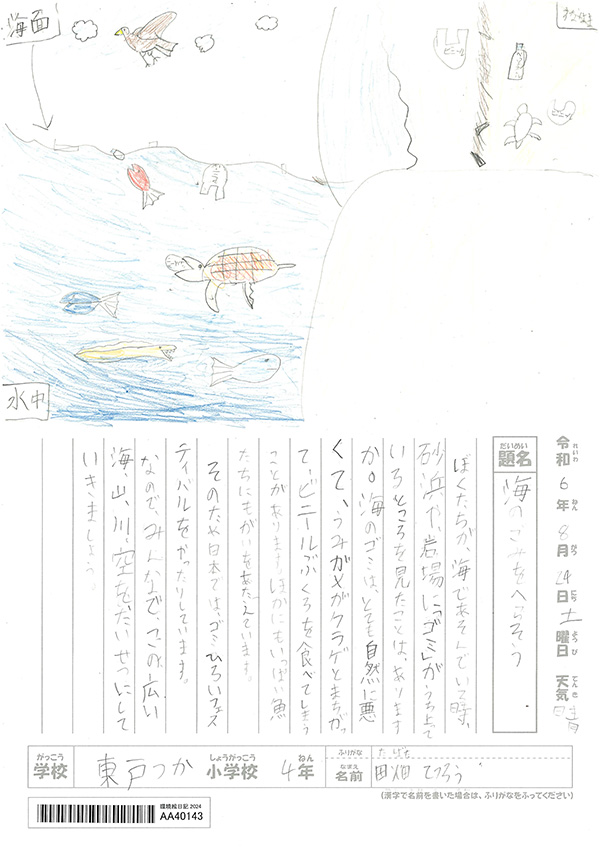 海面
水中
ビニール
令和6年8月24日土曜日 天気 晴
れいわ ねん がつ にち ようび てんき
だいめい
題名
海のごみをへらそう
ぼくたちが、海であそんでいて時、
砂浜や、岩場に「ゴミ」がうち上って
いろところを見たことは、あります
か。海のゴミは、とても自然に悪
くて、うみガメがクラゲとまちがっ
て、ビニールぶくろを食べてしまう
ことがあります。ほかにもいっぱい魚
たちにもがいをあたえています。
そのため日本では、ゴミひろいフェス
ティバルをやったりしています。
なので、みんなで、この広い
海、山、川、空を、たいせつにして
いきましょう。
がっこう しょうがっこう ねん ふりがな
学校 東戸つか 小学校 4年
なまえ
名前 田畑 てつろう
たばた
(漢字で名前を書いた場合は、ふりがなをふってください)
環境絵日記 2024
AA40143